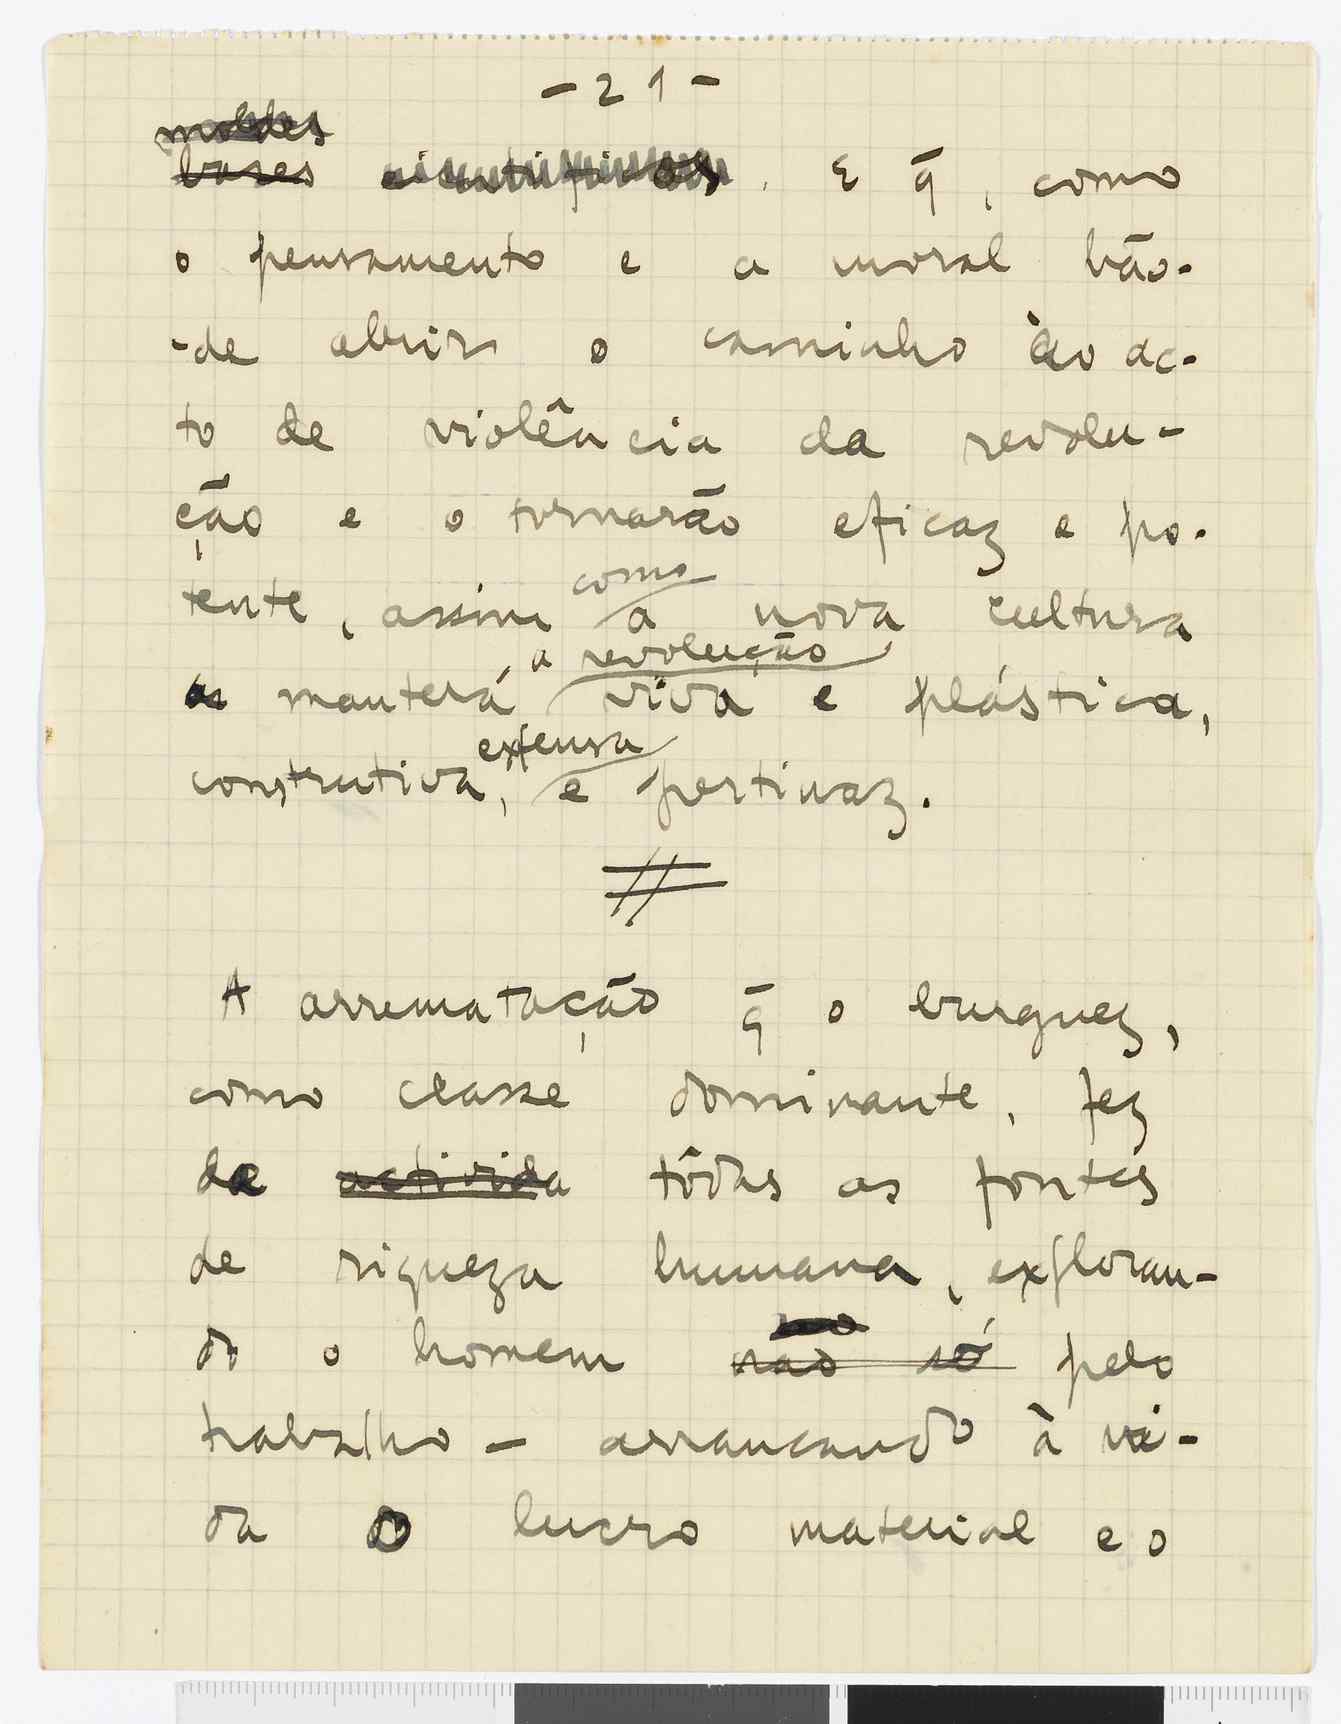 - 21 -
moldes
bases cientificos. E q̄, como
o pensamento e a moral hão-
-de abrir o caminho ào ac-
to de violência da revolu-
ção e o tornarão eficaz e po-
tente, assim como a nova cultura
a manterá a revolução viva e plástica,
construtiva, extensa e pertinaz.
A arrematação q̄ o burguez,
como classe dominante, fez
de activida tôdas as fontes
de riqueza humana, exploran-
do o homem não só pelo
trabalho - arrancando à vi-
da o lucro material e o